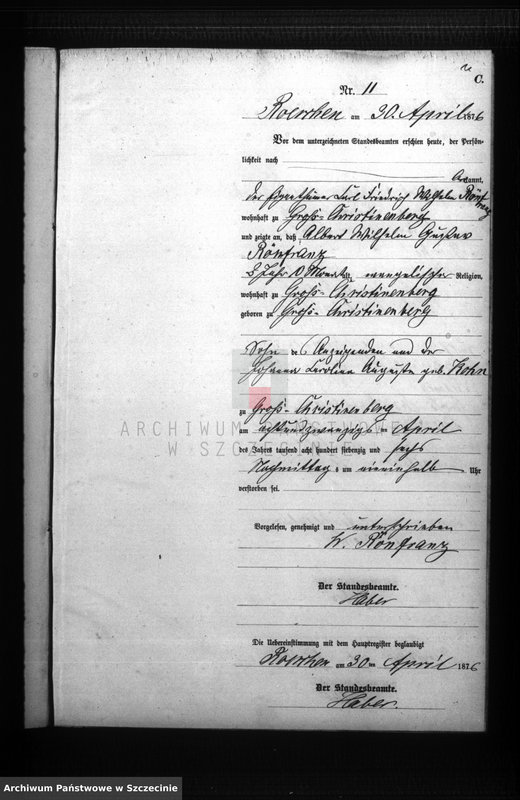 C.
Nr. 11
Roerchen am 30 April 1876
Vor dem unterzeichneten Standesbeamten erschien heute, der Persön-
lichkeit nach
kannt,
der Eigenthümer Carl Friedrich Wilhelm Rönfranz
wohnhaft zu Groß-Christinenberg
und zeigte an, daß Albert Wilhelm Gustav
Rönfranz
Jahr 0 Monat alt, evangelischer Religion,
wohnhaft zu Groß-Christinenberg
geboren zu Groß-Christinenberg
Sohn des Anzeigenden und der
Johanna Caroline Auguste geb. Kohn
zu Groß-Christinenberg
ARCHIWUM
W SZCZECINIE
am achtundzwanzigsten April
des Jahres tausend acht hundert siebenzig und sechs
Nachmittags um viereinhalb Uhr
verstorben sei.
Vorgelesen, genehmigt und unterschrieben
W. Rönfranz
Der Standesbeamte.
Haber
Die Uebereinstimmung mit dem Hauptregister beglaubigt
Roerchen am 30ten April 1876
Der Standesbeamte.
Haber.
Archiwum Państwowe w Szczecinie